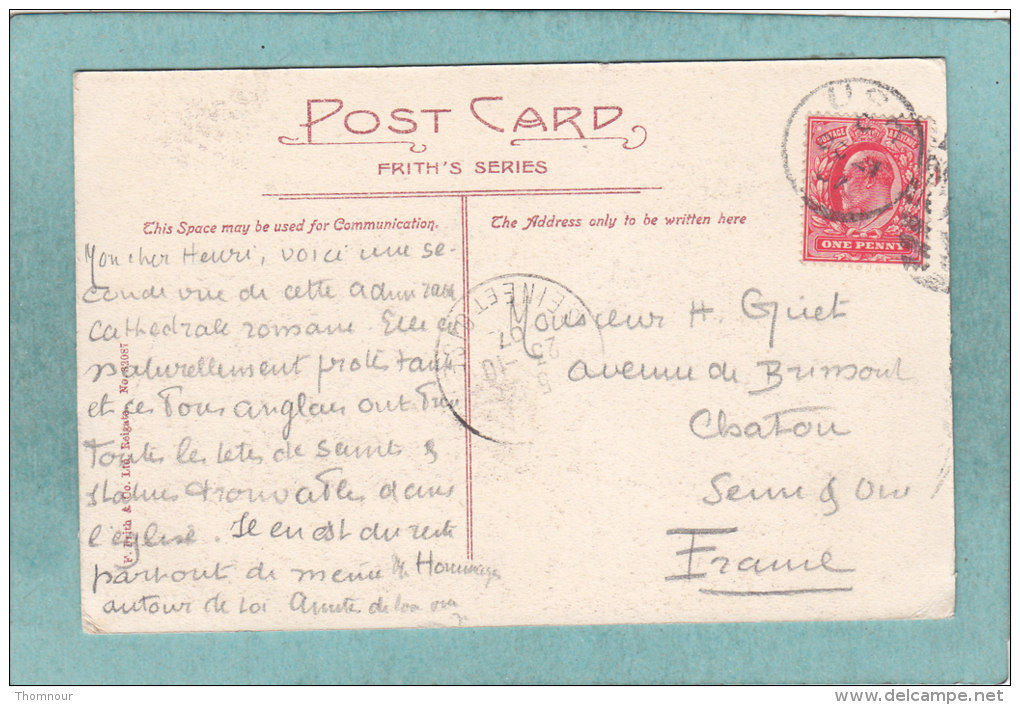 POST CARD
FRITH'S SERIES
This Space may be used for Communication.
The Address only to be written here
POSTAGE
ONE PENNY
Mon cher Henri, voici une se-
conde vue de cette admirable
Cathédrale romane. Elle est
naturellement protestante
et ces bons anglais ont
toutes les têtes de saints &
statues trouvables dans
l'église. Il en est du reste
partout de même Hommages
autour de toi Amitiés de ton
Monsieur H. Griet
avenue de Brimont
Chatou
Seine & Oise
France
F. Frith & Co. Ltd., Reigate. No. 32087
SEINE ET OISE
25 -10
07
Thomnour
www.delcampe.net